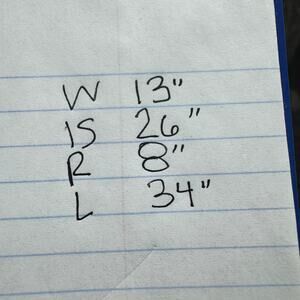 W 13"
IS 26"
R 8"
L 34"